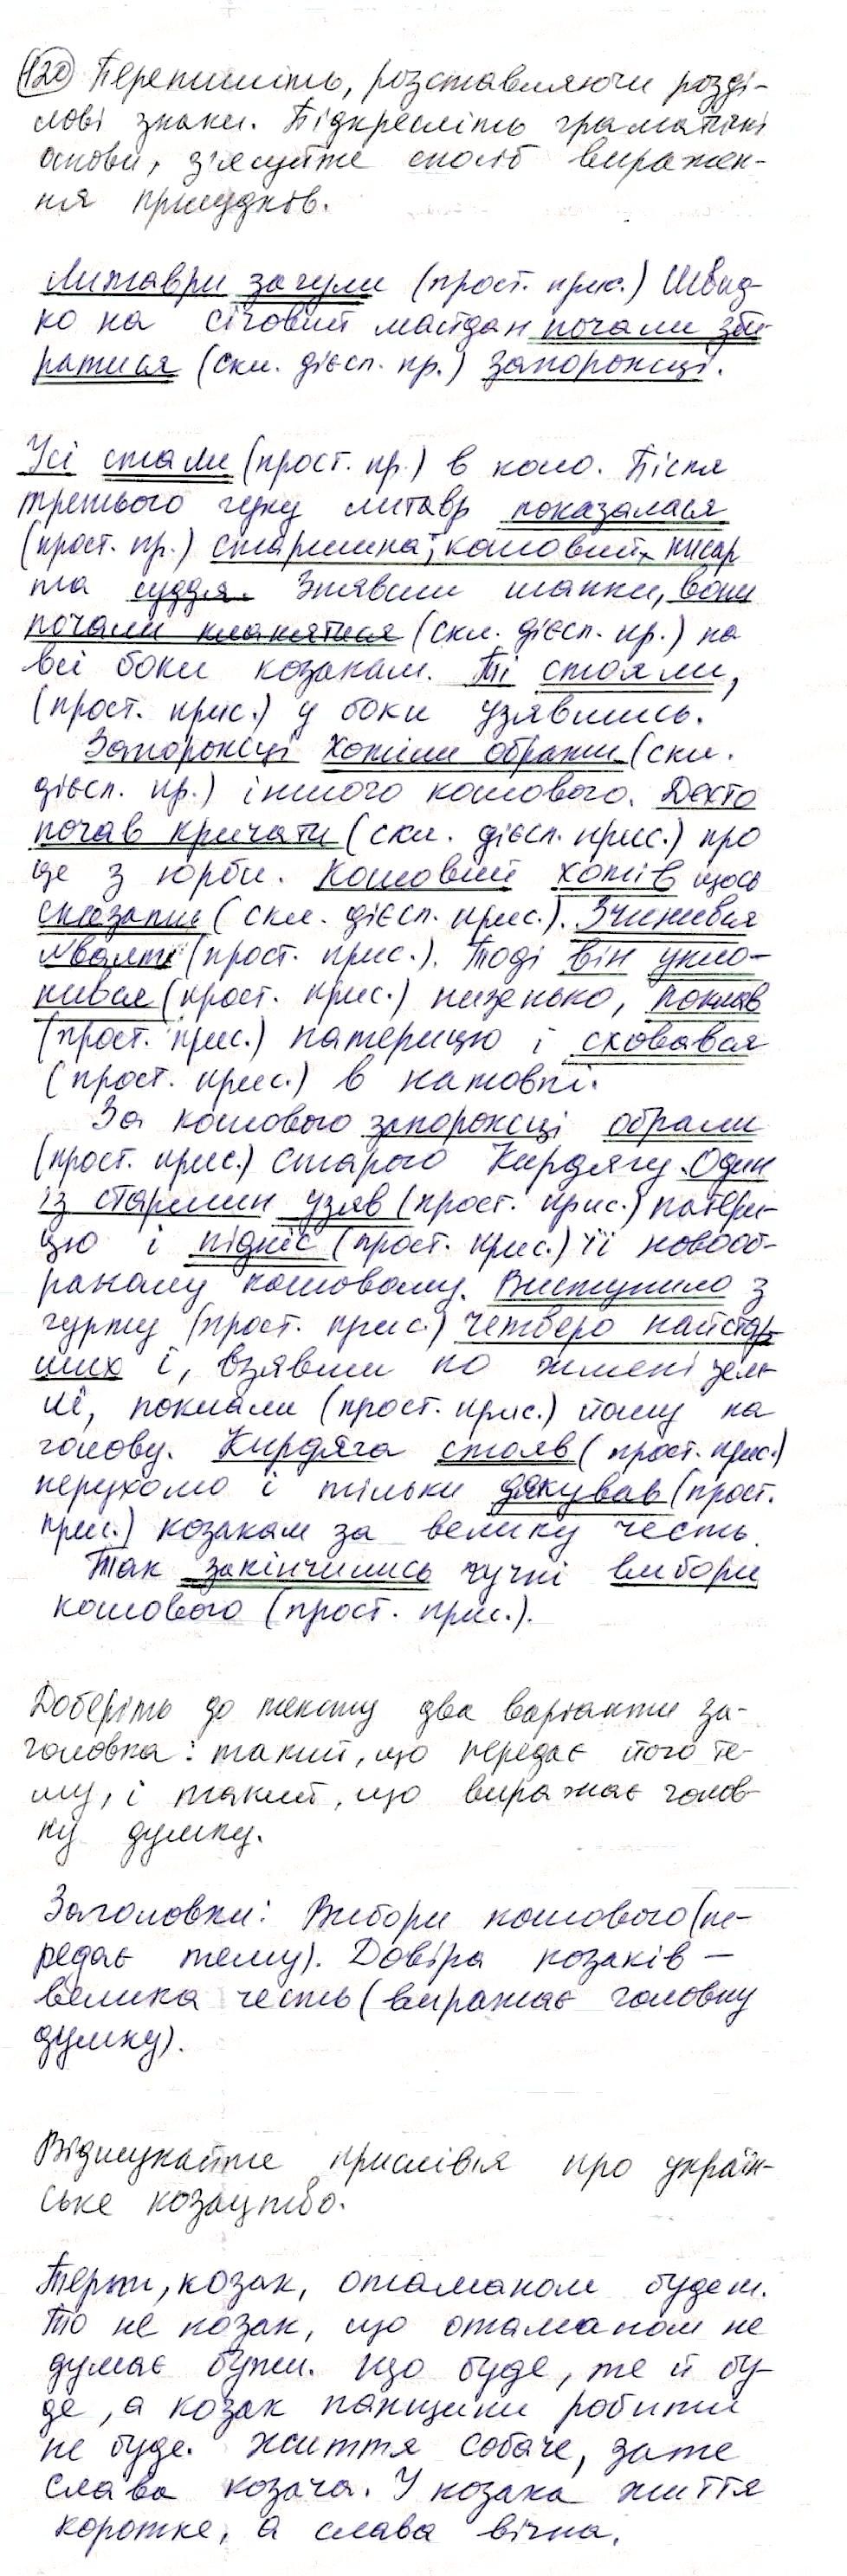 120 Перепишіть, розставляючи розді-
лові знаки. Підкресліть граматичні
основи, з'ясуйте спосіб виражен-
ня присудків.
Литаври загули (прост. прис.) Швид-
ко на січовий майдан почали зби-
ратися (скл. дієсл. пр.) запорожці.
Усі стали (прост. пр.) в коло. Після
третього гуку литавр показалася
(прост. пр.) старшина; кошовий, писар
та суддя. Знявши шапки, вони
почали кланятися (скл. дієсл. пр.) на
всі боки козакам. Ті стояли,
(прост. прис.) у боки узявшись.
Запорожці хотіли обрати (скл.
дієсл. пр.) іншого кошового. Дехто
почав кричати (скл. дієсл. прис.) про
це з юрби. Кошовий хотів щось
сказати (скл. дієсл. прис.). Зчинився
ґвалт (прост. прис.). Тоді він укло-
нився (прост. прис.) низенько, поклав
(прост. прис.) патерицю і сховався
(прост. прис.) в натовпі.
За кошового запорожці обрали
(прост. прис.) старого Кирдягу. Один
із старшин узяв (прост. прис.) патери-
цю і підніс (прост. прис.) її новооб-
раному кошовому. Виступило з
гурту (прост. прис.) четверо найстар-
ших і, взявши по жмені зем-
лі, поклали (прост. прис.) йому на
голову. Кирдяга стояв (прост. прис.)
нерухомо і тільки дякував (прост.
прис.) козакам за велику честь.
Так закінчились гучні вибори
кошового (прост. прис.).
Доберіть до тексту два варіанти за-
головка: такий, що передає його те-
му, і такий, що виражає голов-
ну думку.
Заголовки: Вибори кошового (пе-
редає тему). Довіра козаків –
велика честь (виражає головну
думку).
Відшукайте прислів'я про україн-
ське козацтво.
Терпи, козак, отаманом будеш.
То не козак, що отаманом не
думає бути. Що буде, те й бу-
де, а козак панщини робити
не буде. Життя собаче, зате
слава козача. У козака життя
коротке, а слава вічна.